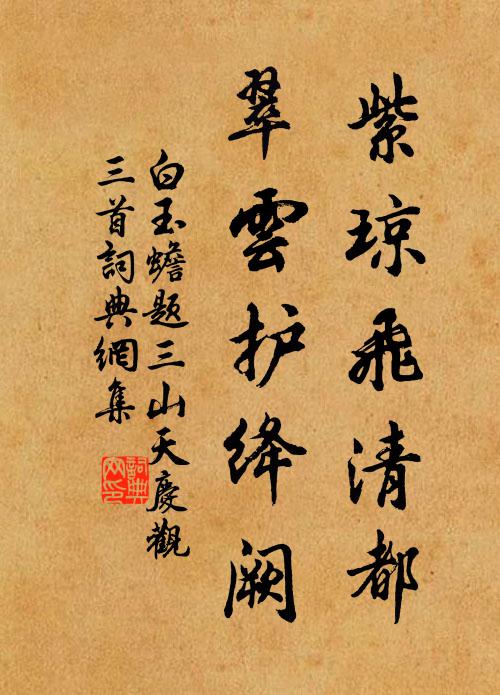 紫琼飛清都
翠雲护绛阙
白玉蟾題三山天慶觀
三首詞典網集
詞典
网印